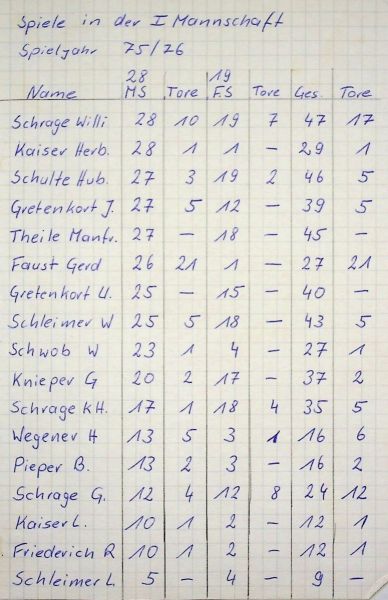 Spiele in der I Mannschaft
Spieljahr 75/26
28 19
Name MS Tore F.S Tore Ges. Tore
Schrage Willi 28 10 19 7 47 17
Kaiser Herb. 28 1 1 – 29 1
Schulte Hub. 27 3 19 2 46 5
Gretenkort J. 27 5 12 – 39 5
Theile Manfr. 27 – 18 – 45 –
Faust Gerd 26 21 1 – 27 21
Gretenkort U. 25 – 15 – 40 –
Schleimer W 25 5 18 – 43 5
Schwob W 23 1 4 – 27 1
Knieper G 20 2 17 – 37 2
Schrage KH. 17 1 18 4 35 5
Wegener H 13 5 3 1 16 6
Pieper B. 13 2 3 – 16 2
Schrage G. 12 4 12 8 24 12
Kaiser L. 10 1 2 – 12 1
Friederich R 10 1 2 – 12 1
Schleimer L 5 – 4 – 9 –